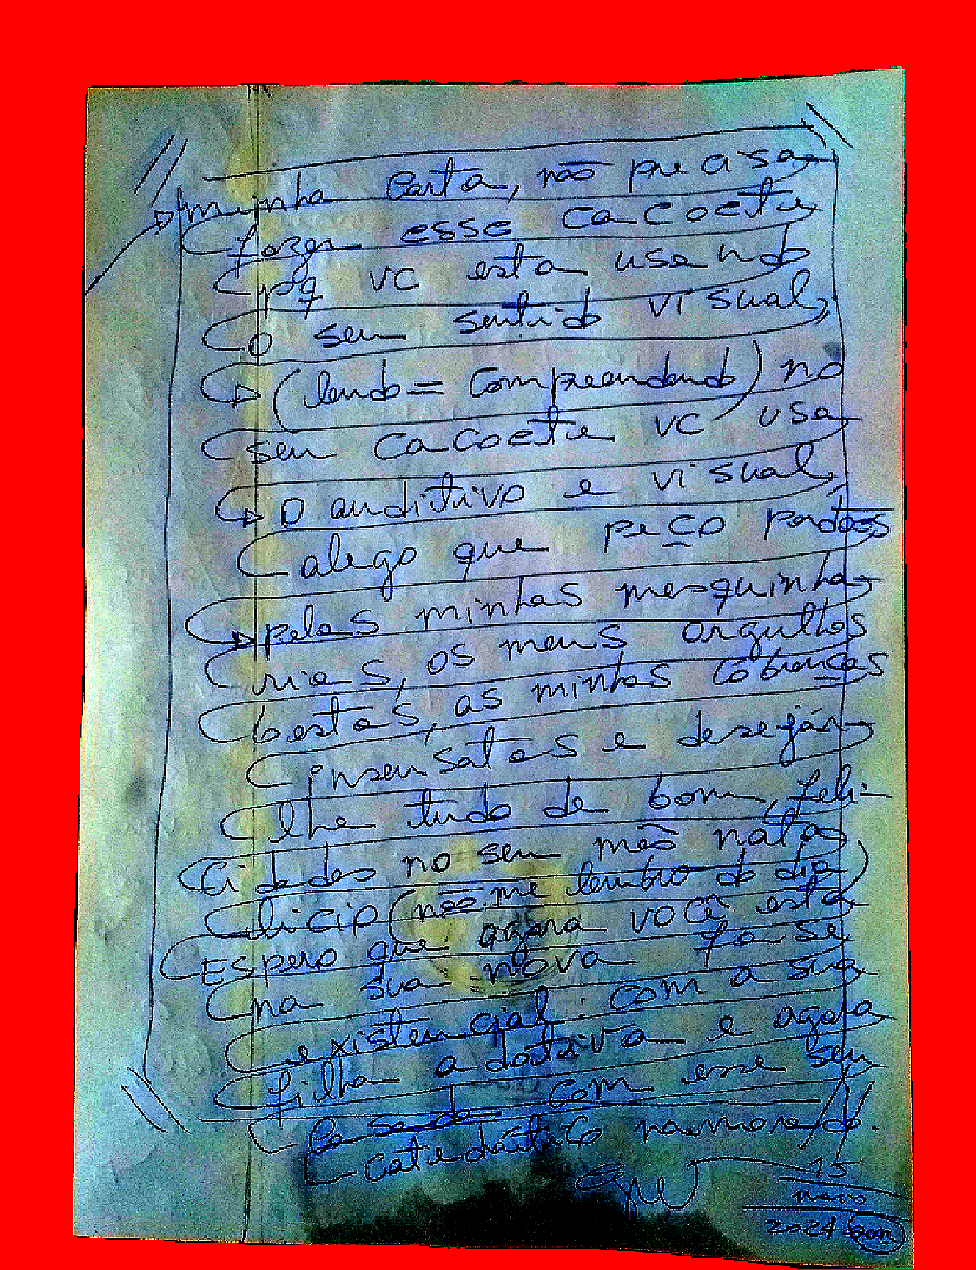 minha carta, não precisa
fazer esse cacoete
pq vc esta usando
o seu sentido visual,
(lendo = compreendendo) no
seu cacoete vc usa
o auditivo e visual,
alego que peço perdão
pelas minhas mesquinha
rias, os meus orgulhos
bestas, as minhas cobranças
insensatas e desejár
lhe tudo de bom, feli-
cidades no seu mês nata
licio (não me lembro do dia)
Espero que agora você está
na sua nova fase
existencial: com a sua
filha adotiva e agora
casada com esse seu
catedrático namorado.
15
maio
2024